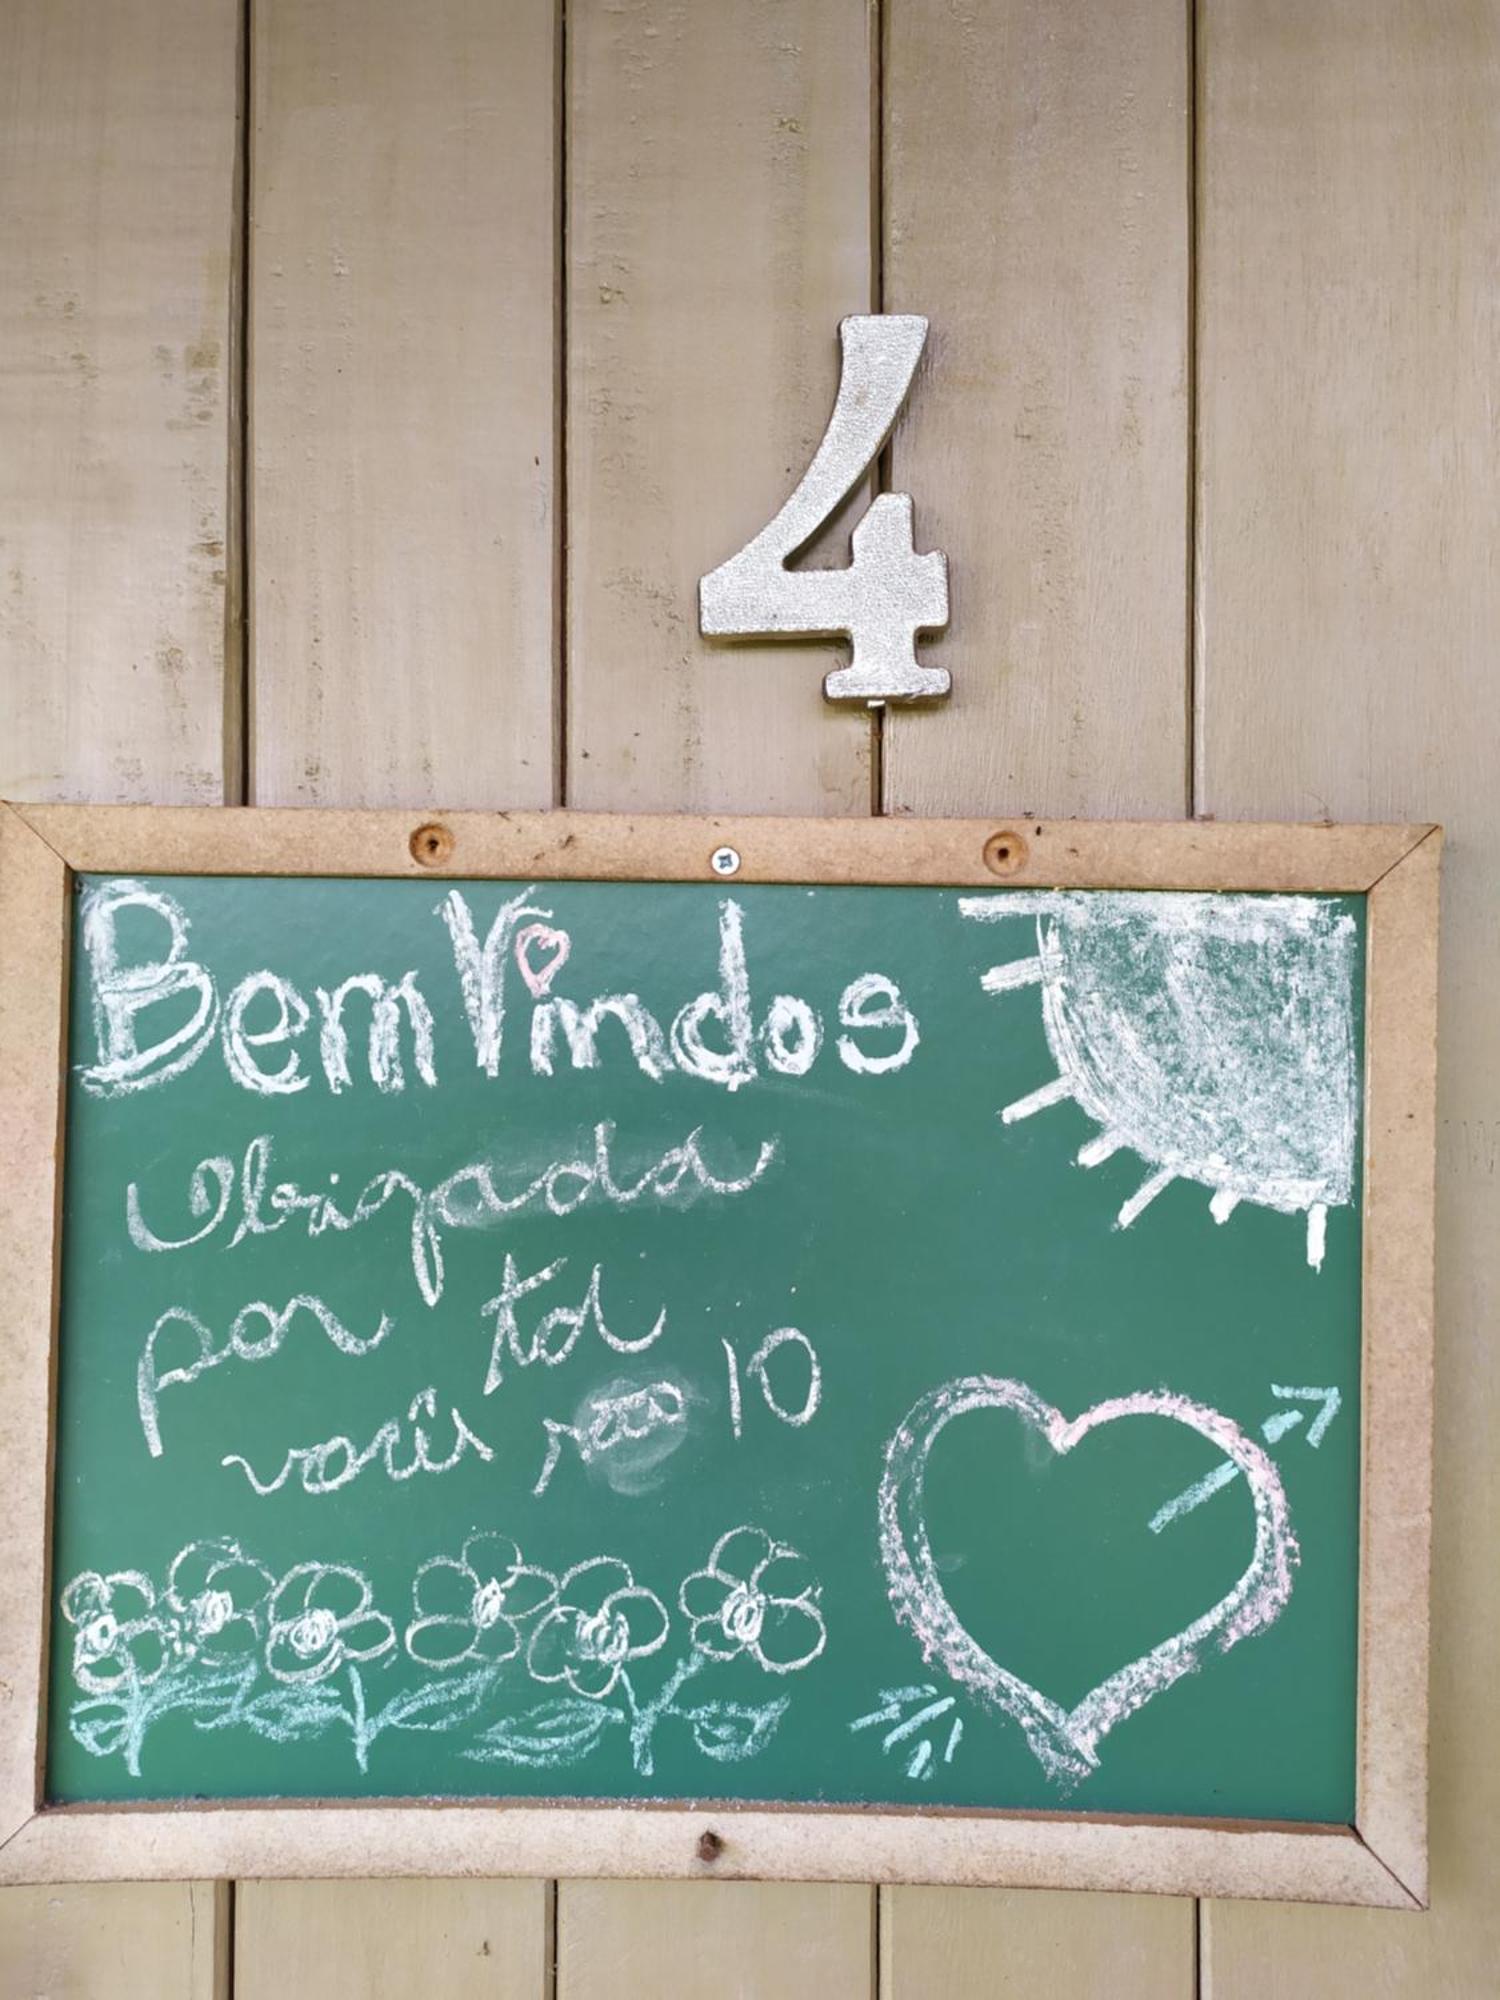 4
Bem Vindos
Obrigada
por td
vocês são 10